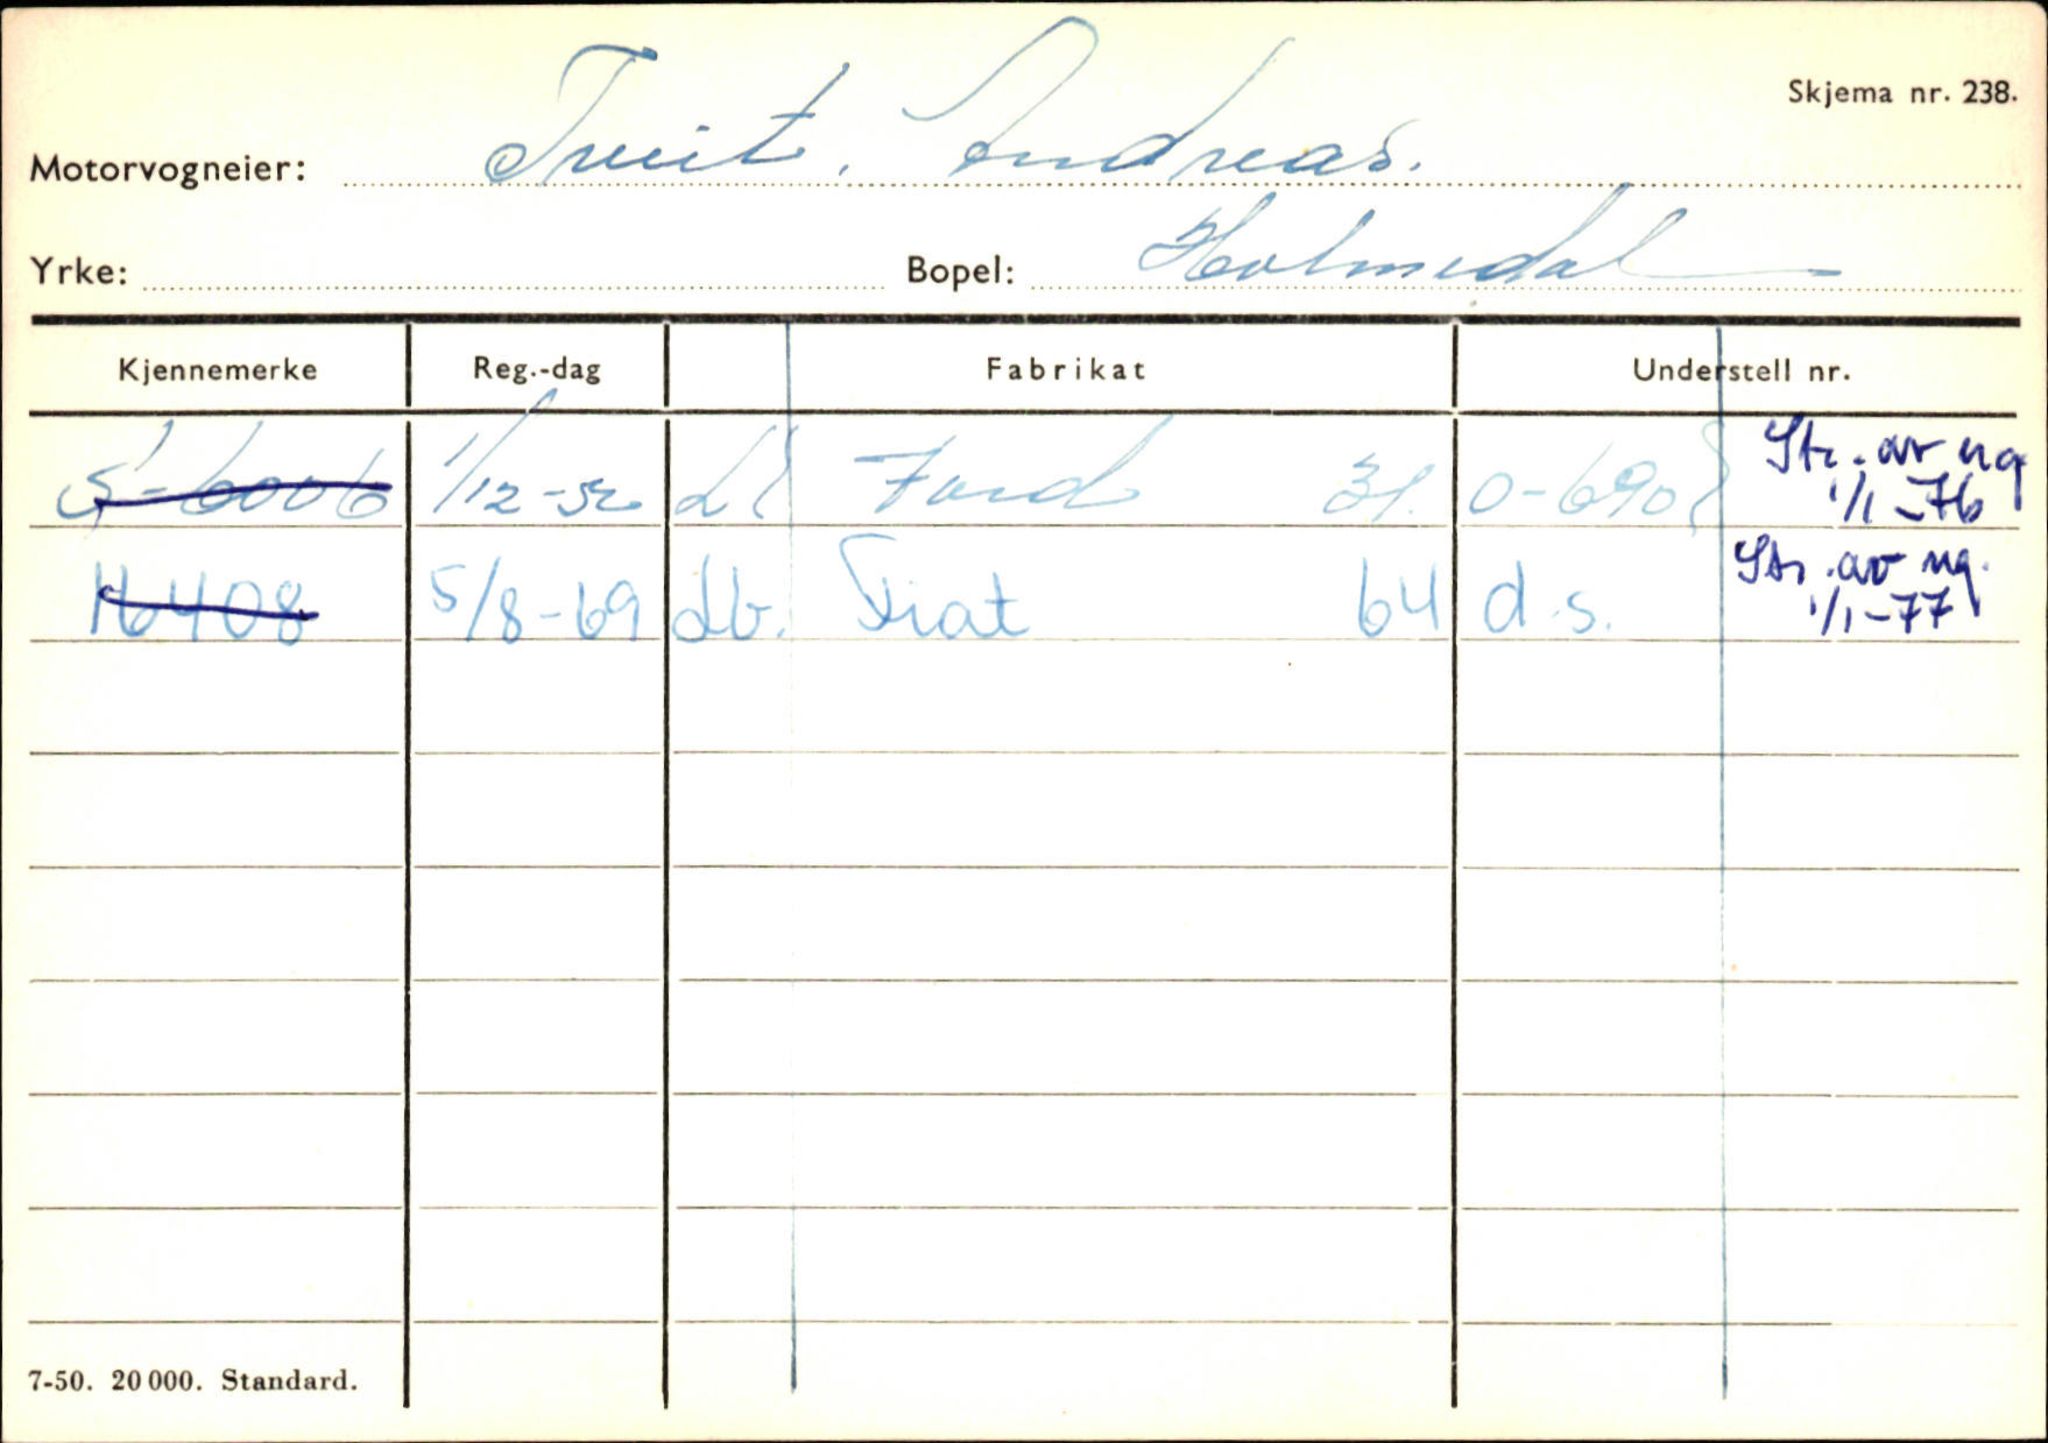 Skjema nr. 238.
Motorvogneier: Tveit, Andreas.
Yrke: Bopel: Holmedal
Kjennemerke Reg.-dag Fabrikat Understell nr.
S-6006 1/12-52 Ford 31. 0-690 Str. av ng 1/1-76
16408 5/8-69 Lb. Fiat 64 d.s. Str. av ng. 1/1-77
7-50. 20 000. Standard.